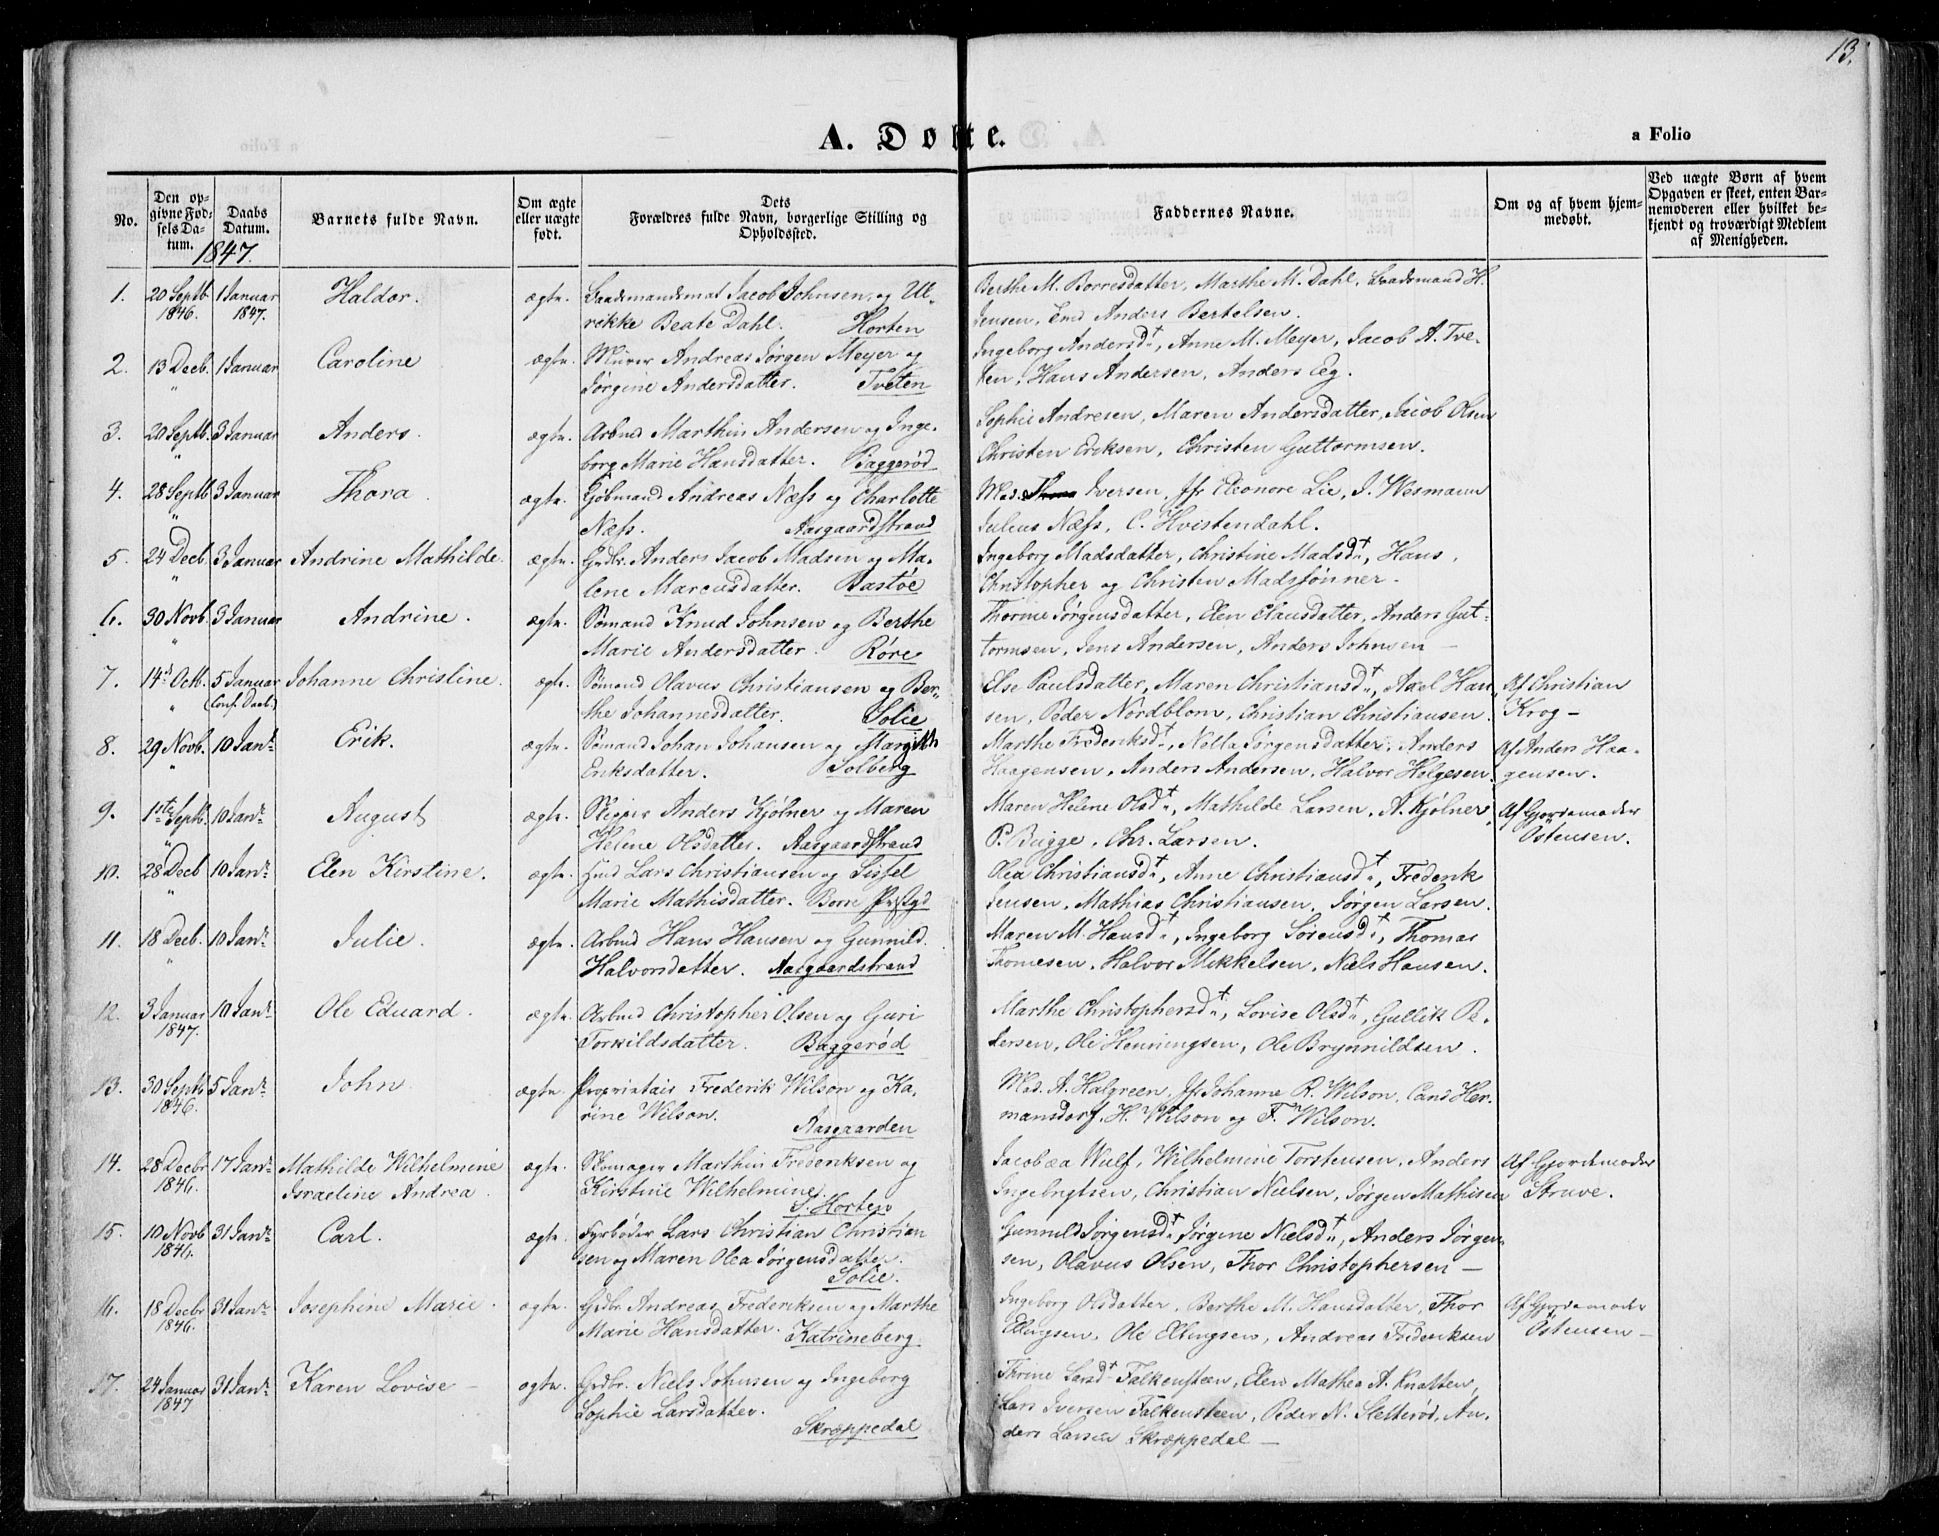 13.
A. Døbte.
a Folio
No.
Den op-
givne Fød-
sels Da-
tum.
Daabs
Datum.
1847.
Barnets fulde Navn.
Om ægte
eller uægte
født.
Dets
Forældres fulde Navn, borgerlige Stilling og
Opholdssted.
Faddernes Navne.
Om og af hvem hjem-
medøbt.
Ved uægte Børn af hvem
Opgaven er skeet, enten Bar-
nemoderen eller hvilket be-
kjendt og troværdigt Medlem
af Menigheden.
1. 20 Septb. 1 Januar Haldor. ægte. Baadsmandsmat Jacob Johnsen og Ul- Berthe M. Borresdatter, Marthe M. Dahl, Baadsmand H.
1846. 1847. rikke Beate Dahl. Horten Jensen, Anders Bertelsen.
2. 13 Decb. 1 Januar Caroline ægte. Murer Andreas Jørgen Meyer og Ingeborg Andersd., Anne M. Meyer, Jacob A. Tve-
" Jørgine Andersdatter. Tveten ten, Hans Andersen, Anders Eeg.
3. 20 Septb. 3 Januar Anders. ægte. Arbmd Marthin Andersen og Inge- Sophie Andresen, Maren Andersdatter, Jacob Olsen
" borg Marie Hansdatter. Baggerød Christen Eriksen, Christen Guttormsen.
4. 28 Septb 3 Januar Thora. ægte. Kjøbmand Andreas Næss og Charlotte Mad. Iversen, Jfr Eleonore Lie, J. Wesmann
" Næss. Aasgaardstrand Julius Næss, C. Hvistendahl.
5. 24 Decb. 3 Januar Andrine Mathilde. ægte. Grdbr. Anders Jacob Madsen og Ma- Ingeborg Madsdatter, Christine Madsd., Hans,
" lene Marcusdatter. Bastøe Christopher og Christen Madssønner.
6. 30 Novb. 3 Januar Andrine. ægte. Sømand Knud Johnsen og Berthe Thorine Jørgensdatter, Elen Clausdatter, Anders Gut-
Marie Andersdatter. Røre tormsen, Jens Andersen, Anders Johnsen —
7. 14 Octb. 5 Januar Johanne Christine. ægte. Sømand Olavus Christiansen og Ber- Else Paulsdatter, Maren Christiansd., Axel Han- Af Christian
" (Conf. Daab) the Johannesdatter. Solie sen, Peder Nordblom, Christian Christiansen. Krog —
8. 29 Novb. 10 Janr. Erik. ægte. Sømand Johan Johansen og Margith Marthe Frederiksd., Nella Jørgensdatter, Anders Af Anders Haa-
" Eriksdatter. Solberg Haagensen, Anders Andersen, Halvor Helgesen. gensen.
9. 1ste Septb. 10 Janr. August ægte. Skipper Anders Kjølner og Maren Maren Helene Olsd., Mathilde Larsen, A. Kjølner, Af Gjordemoder
" Helene Olsdatter. Aasgaardstrand P. Bugge, Chr. Larsen. Østensen.
10. 28 Decb 10 Janr. Elen Kirstine. ægte. Lars Christiansen og Sissel Olea Christiansd., Anne Christiansd., Frederik
" Marie Mathisdatter. Borre Jensen, Mathias Christiansen, Jørgen Larsen.
11. 18 Decb. 10 Janr. Julie. ægte. Arbmd Hans Hansen og Gunnild. Maren M. Hansd., Ingeborg Sørensd., Thomas
" Halvorsdatter. Aasgaardstrand Thomesen, Halvor Mikkelsen, Niels Hansen.
12. 3 Januar 10 Janr. Ole Eduard. ægte. Arbmd Christopher Olsen og Guri Marthe Christophersd., Lovise Olsd., Gullik Pe-
1847. Torkildsdatter. Baggerød dersen, Ole Henningsen, Ole Brynnildsen.
13. 30 Septb 5 Janr. John. ægte. Proprietair Frederik Wilson og Ka- Mad. A. Halgreen, Jfr Johanne R. Wilson, Cand Her-
1846. rine Wilson. Aasgaarden mansdorf, H. Wilson og F. Wilson.
14. 28 Decbr 17 Janr. Mathilde Wilhelmine ægte. Skomager Marthin Frederiksen og Jacobæa Wulf, Wilhelmine Torstensen, Anders Af Gjordemoder
1846. Israeline Andrea. Kirstine Wilhelmine. S. Horten Ingebrigtsen, Christian Nielsen, Jørgen Mathisen Struve.
15. 10 Novb 31 Janr. Carl. ægte. Fyrbøder Lars Christian Christian Gunnild Jørgensd., Jørgine Nielsd., Anders Jørgen-
1846. sen og Maren Olea Jørgensdatter. Solie. sen, Olavus Olsen, Thor Christophersen —
16. 18 Decbr 31 Janr. Josephine Marie. ægte. Grdbr. Andreas Frederiksen og Marthe Ingeborg Olsdatter, Berthe M. Hansdatter, Thor Af Gjordemoder
1846. Marie Hansdatter. Katrineberg. Ellingsen, Ole Ellingsen, Andreas Frederiksen Østensen —
17. 24 Januar 31 Janr. Karen Lovise — ægte. Grdbr. Niels Johnsen og Ingeborg Thrine Larsd. Falkensteen, Elen Mathea A. Knatten,
1847 Sophie Larsdatter. Skræppedal Lars Iversen Falkensteen, Peder N. Sletterød, An-
ders Larsen Skræppedal —